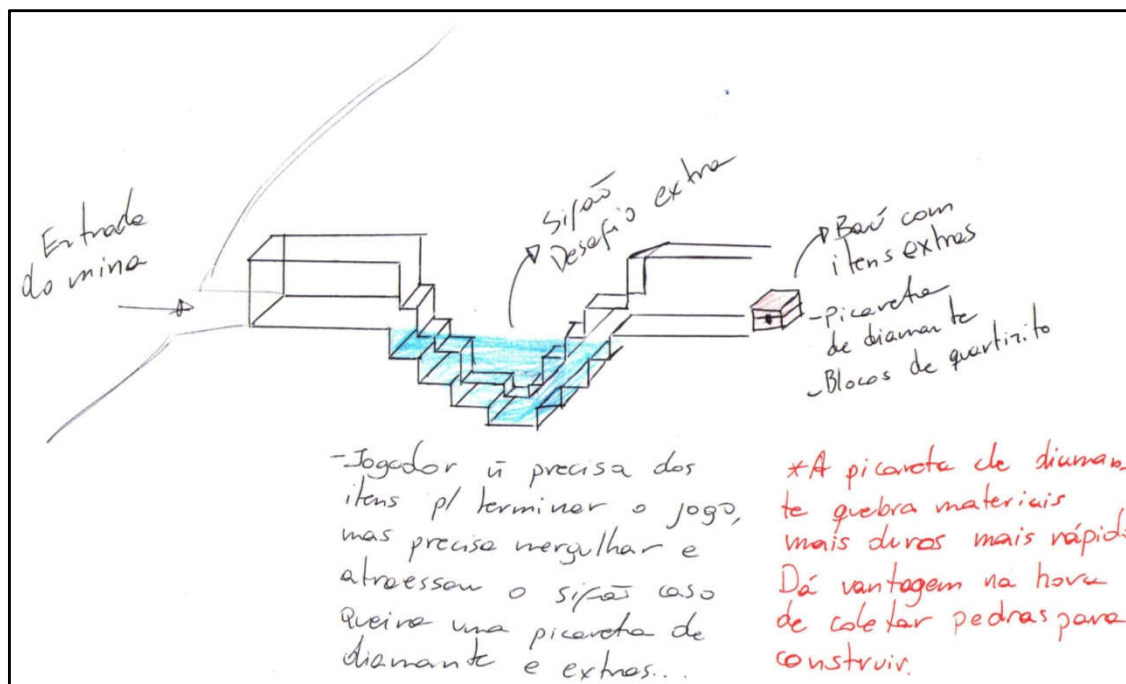 Entrada
da mina
Sifão
Desafio extra
Baú com
itens extras
- Picareta
de diamante
- Blocos de quartizito
- Jogador ñ precisa dos
itens p/ terminar o jogo,
mas precisa mergulhar e
atraessar o sifão caso
queira uma picareta de
diamante e extras...
*A picareta de diaman_
te quebra materiais
mais duros mais rápid
Dá vantagem na hora
de coletar pedras para
construir.